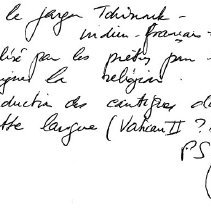 le jargon Tchinook -
indien - français -
lisé par les prêtres pour
igner la religion.
duction des cantiques d
tte langue (Vatican II ?
PS
(